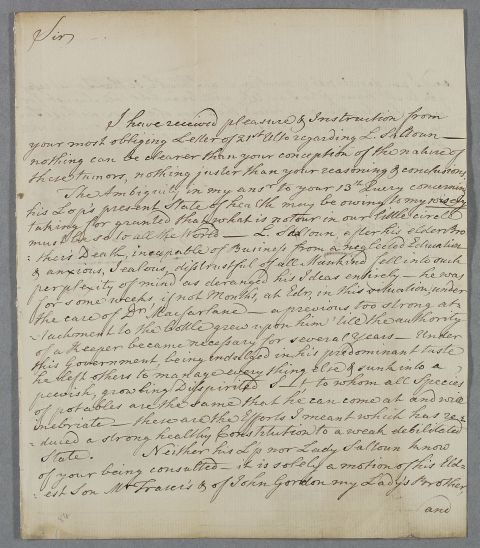 Sir
I have received pleasure & Instruction from
your most obliging Letter of 21st Ulto regarding L. Saltoun —
nothing can be clearer than your conception of the nature of
these tumors, nothing juster than your reasoning & conclusions.
The Ambiguity in my ansr to your 13th Query concerning
his Lop's present State of health may be owing to my
taking for granted that what is notour in our little circle
must be so to all the World — L. Saltoun, after his elder Bro
:thers Death, incapable of Business from a neglected Education
& anxious, Jealous, distrustful of all Mankind fell into such
perplexity of mind as deranged his Ideas entirely — he was
for some weeks, if not Months, at Edr, in this situation, under
the care of Dr Macfarlane — a previous too strong at
:tachment to the bottle grew upon him 'till the authority
of a Keeper became necessary for several years — Under
this Government being indulged in his predominant taste
he left others to manage every thing else & sunk into a
peevish, growling Dispirited S—t to whom all Species
of potables are the same that he can come at and will
inebriate — these are the Efforts I meant which has re
:duced a strong healthy Constitution to a weak debilitated
State. Neither his Lp nor Lady Saltoun know
of your being consulted — it is solely a motion of his Eld
:est Son Mr Fraser's & of John Gordon my Lady's Brother
and